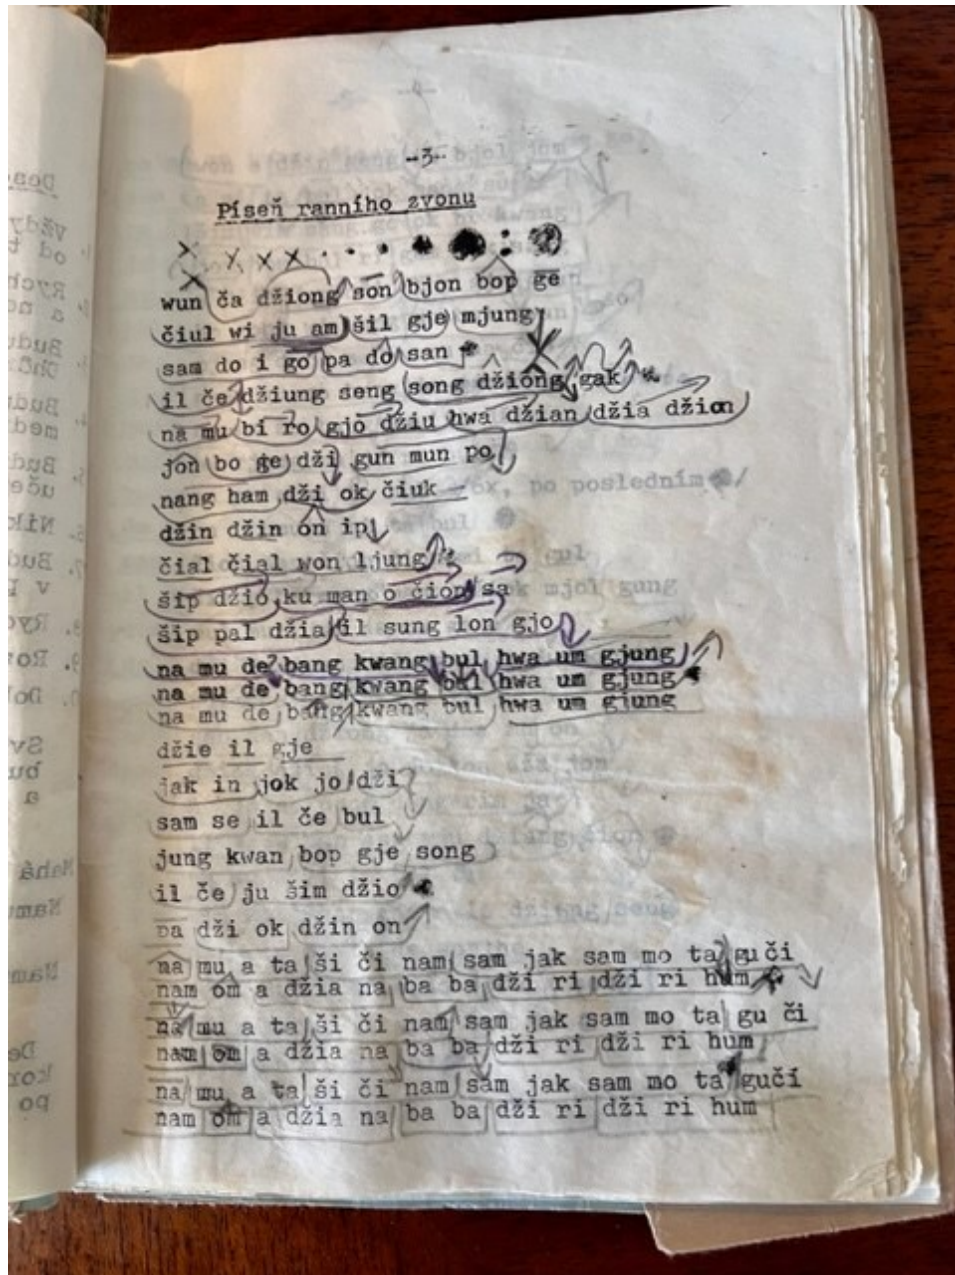 -3-
Píseň ranního zvonu
wun ča džiong son bjon bop ge
čiul wi ju am šil gje mjung
sam do i go pa do san
il če džiung seng song džiong gak
na mu bi ro gjo džiu hwa džian džia džion
jon bo ge dži gun mun po
nang ham dži ok čiuk
džin džin on ip
čial čial won ljung
šip džio ku man o čion sa
šip pal džia il sung lon gjo
na mu de bang kwang bul hwa um gjung
na mu de bang kwang bul hwa um gjung
na mu de bang kwang bul hwa um gjung
džie il gje
jak in jok jo dži
sam se il če bul
jung kwan bop gje song
il če ju šim džio
pa dži ok džin on
na mu a ta ši či nam sam jak sam mo ta guči
nam om a džia na ba ba dži ri dži ri hum
na mu a ta ši či nam sam jak sam mo ta gu či
nam om a džia na ba ba dži ri dži ri hum
na mu a ta ši či nam sam jak sam mo ta guči
nam om a džia na ba ba dži ri dži ri hum